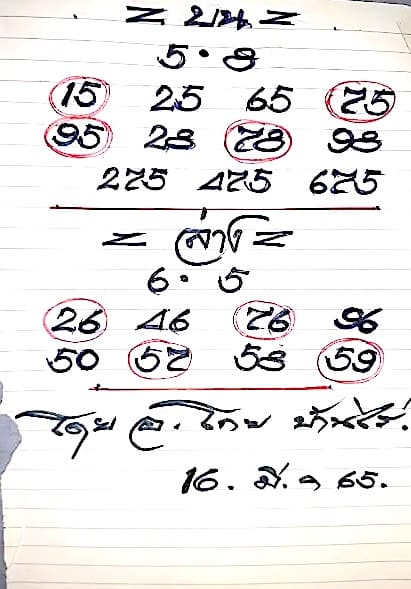 = บน =
5 · 8
15 25 65 75
95 28 78 98
275 475 675
= ล่าง =
6 · 5
26 46 76 96
50 57 58 59
โดย อ. โกย บ้านไร่.
16. มี. ค 65.